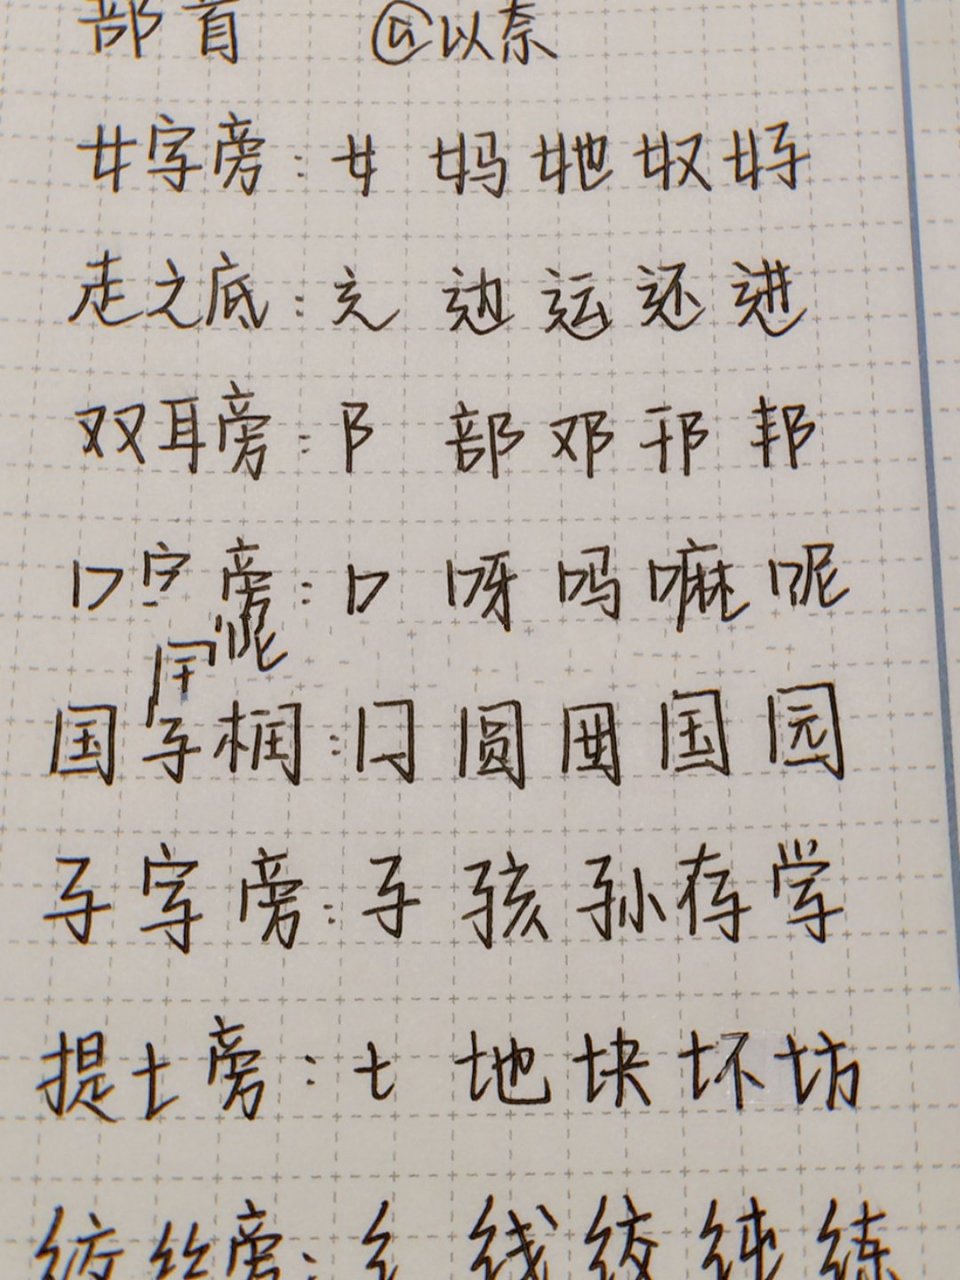 部首 @以奈
女字旁：女 妈 她 奴 好
走之底：辶 边 运 还 进
双耳旁：阝 部 邓 邗 邦
口字旁：口 呀 吗 嘛 呢
呢
国字框：囗 圆 国 园
子字旁：子 孩 孙 存 学
提土旁：土 地 块 坏 坊
绞丝旁：纟 线 绞 纯 练